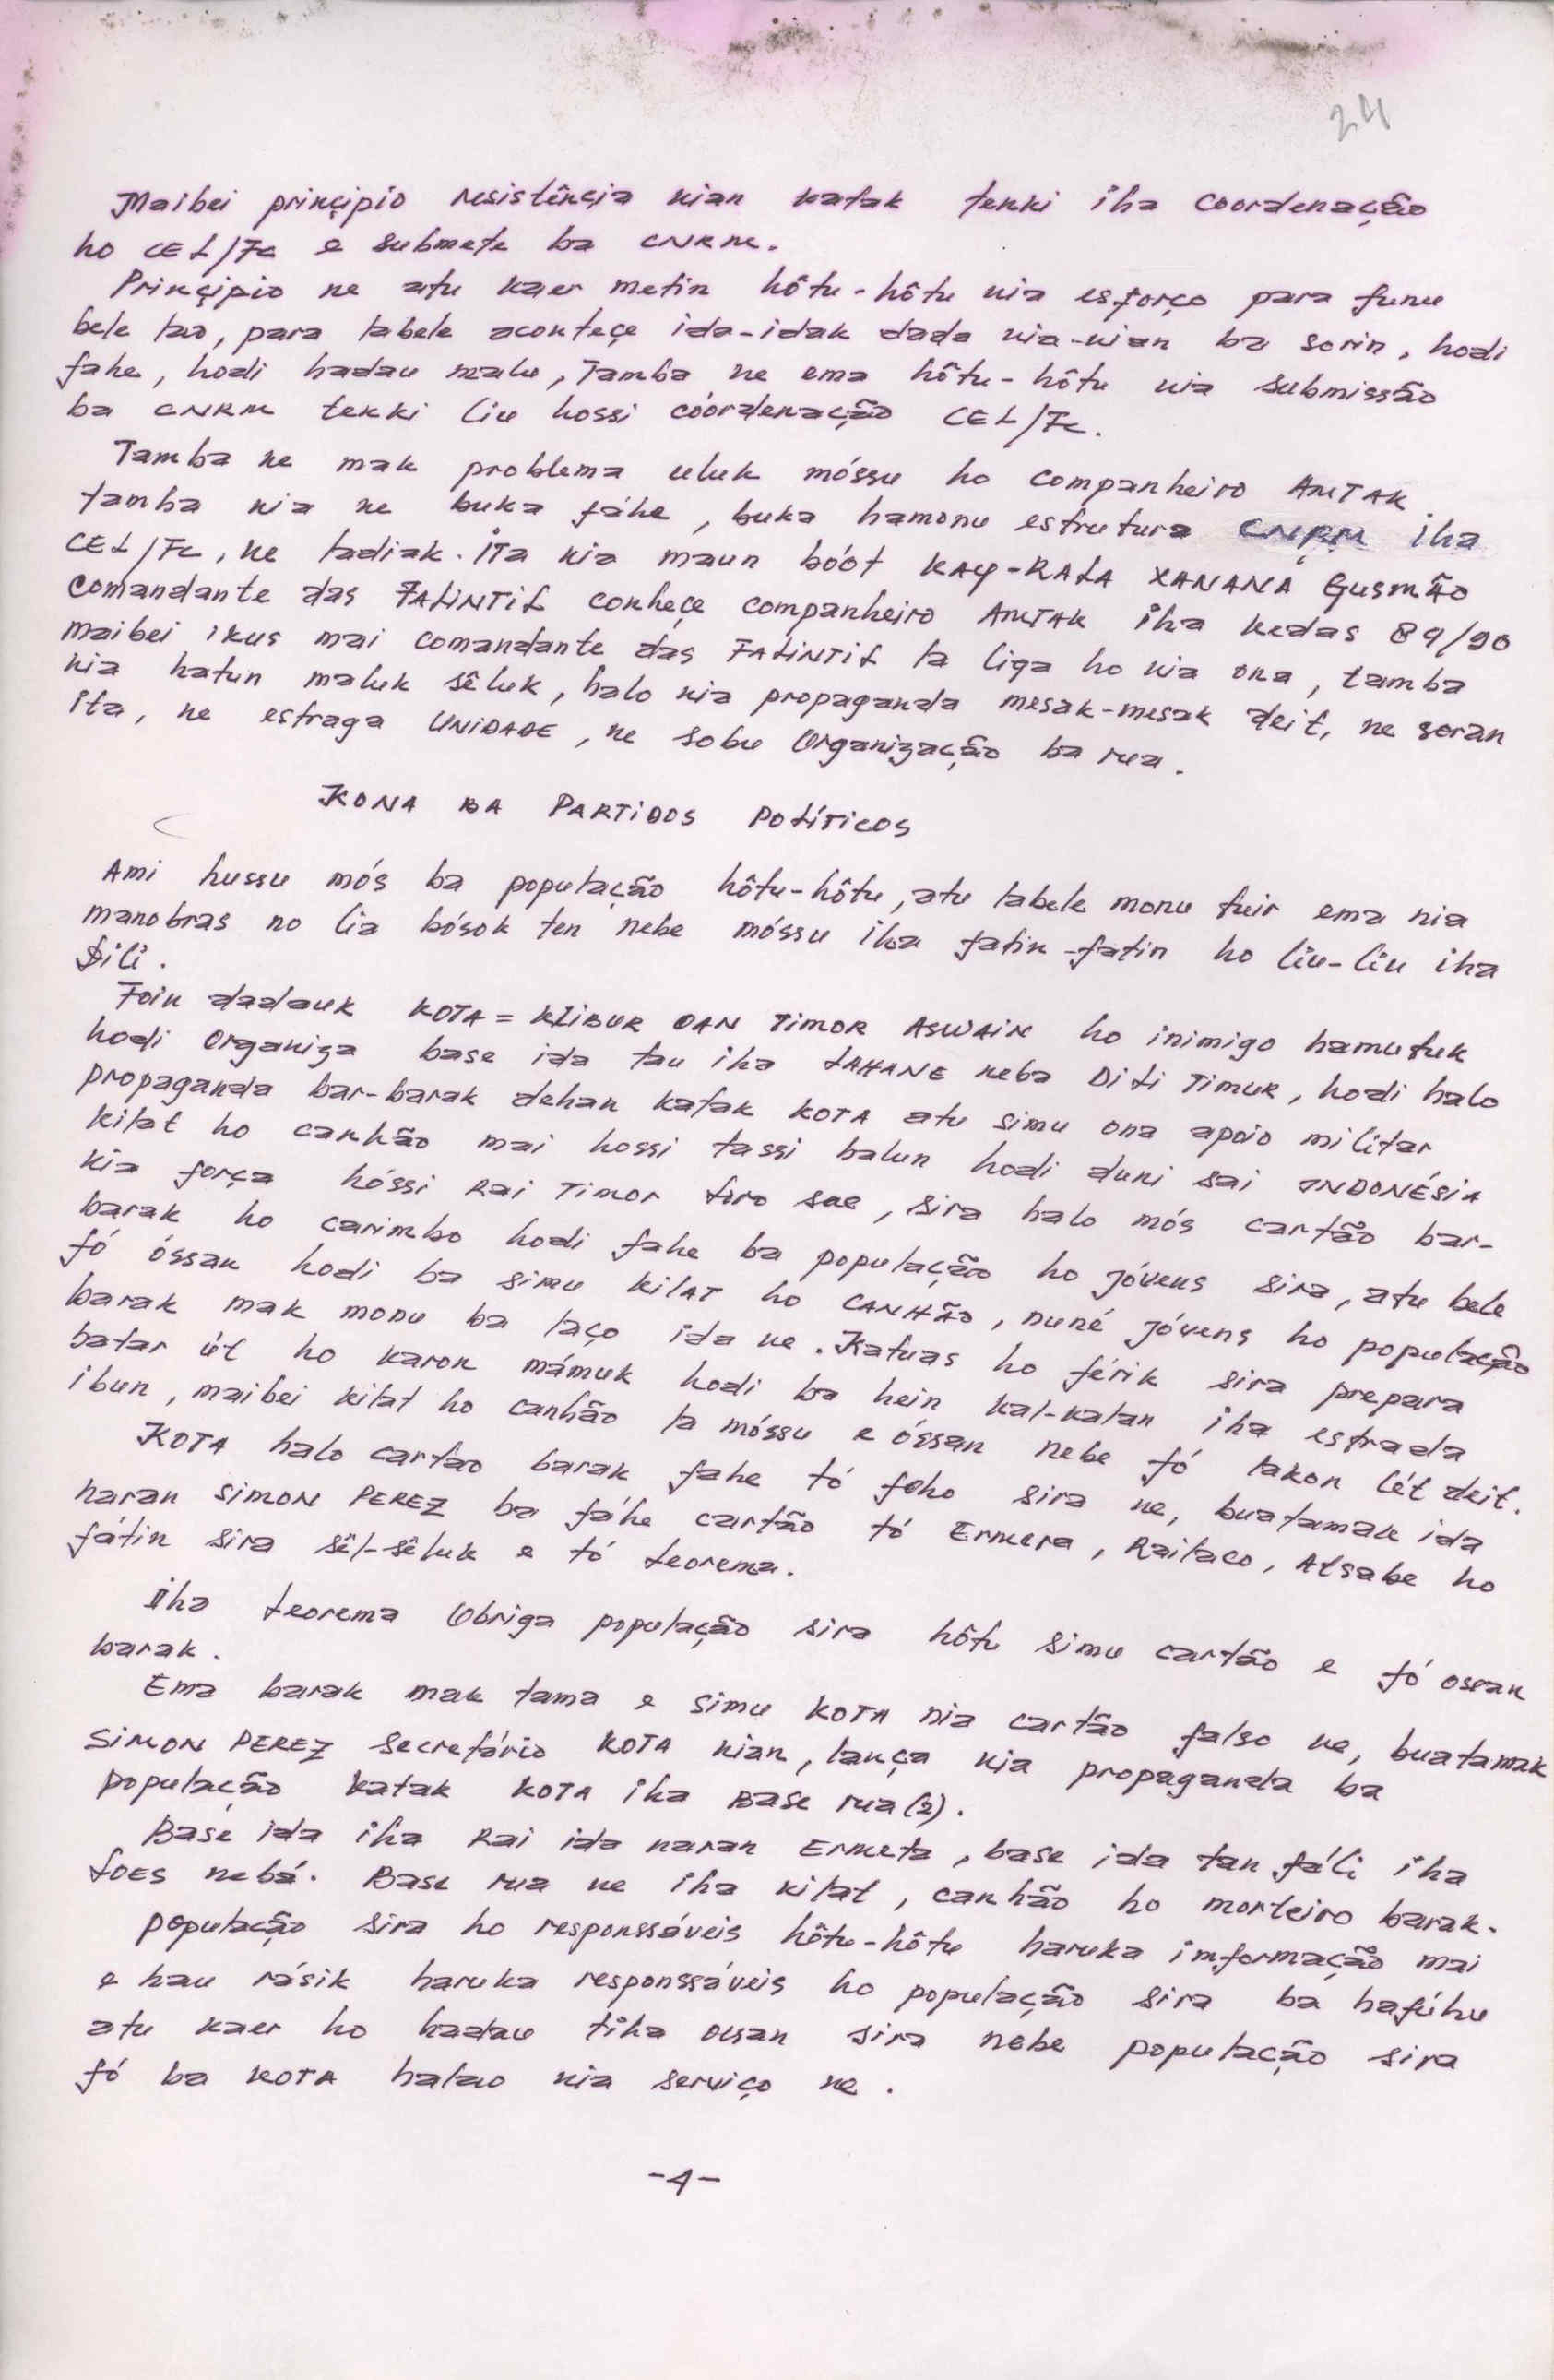 24
Maibei prinçipio resistênçia nian katak tenki iha coordenação
ho CEL/FC e submete ba CNRM.
Prinçipio ne atu kaer metin hôtu-hôtu nia esforço para funu
bele lao, para labele aconteçe ida-idak dada nia-nian ba sorin, hodi
fahe, hodi hadau malu, Tamba ne ema hôtu-hôtu nia submissão
ba CNRM tenki liu hossi cóordenação CEL/FC.
Tamba ne mak problema uluk móssu ho companheiro AMTAK
tamba nia ne buka fáhe, buka hamonu estrutura CNRM iha
CEL/FC, ne ladiak. Ita nia maun bóót KAY-RALA XANANA Gusmão
Comandante das FALINTIL conheçe companheiro AMTAK iha kedas 89/90
maibei ikus mai comandante das FALINTIL la liga ho nia ona, tamba
nia hatun maluk sêluk, halo nia propaganda mesak-mesak deit, ne soran
ita, ne estraga UNIDADE, ne sobu Organização ba rua.
KONA BA PARTIDOS POLÍTICOS
Ami hussu mós ba população hôtu-hôtu, atu labele monu tuir ema nia
manobras no lia bósok ten nebe móssu iha fatin-fatin ho liu-liu iha
Dili.
Foin dadauk KOTA = KLIBUR OAN TIMOR ASWAIN ho inimigo hamutuk
hodi Organiza base ida tau iha LAHANE neba DILI TIMUR, hodi halo
propaganda bar-barak dehan katak KOTA atu simu ona apoio militar
kilat ho canhão mai hossi tassi balun hodi duni sai INDONÉSIA
nia força hóssi Rai Timor Loro sae, sira halo mós cartão bar-
barak ho carimbo hodi fahe ba população ho jóvens sira, atu bele
fó óssan hodi ba simu kilat ho CANHÃO, nuné jóvens ho população
barak mak monu ba laço ida ne. Katuas ho férik sira prepara
batar út ho karon mámuk hodi ba hein kal-kalan iha estrada
ibun, maibei kilat ho canhão la móssu e óssan nebe fó lakon lét deit.
KOTA halo cartao barak fahe tó foho sira ne, buatamak ida
naran SIMON PEREZ ba fáhe cartão tó Ermera, Railaco, Atsabe ho
fátin sira sêl-sêluk e tó Leorema.
Iha Leorema Obriga população sira hôtu simu cartão e fó ossan
barak.
Ema barak mak tama e simu KOTA nia cartão falso ne, buatamak
SIMON PEREZ Secretário KOTA nian, lança nia propaganda ba
população katak KOTA iha Base rua (2).
Base ida iha Rai ida naran Ermeta, base ida tan fáli iha
Loes nebá. Base rua ne iha kilat, canhão ho morteiro barak.
População sira ho responssáveis hôtu-hôtu haruka imformação mai
e hau rásik haruka responssáveis ho população sira ba hafúhu
atu kaer ho hadau tiha ossan sira nebe população sira
fó ba KOTA halao nia serviço ne.
-4-